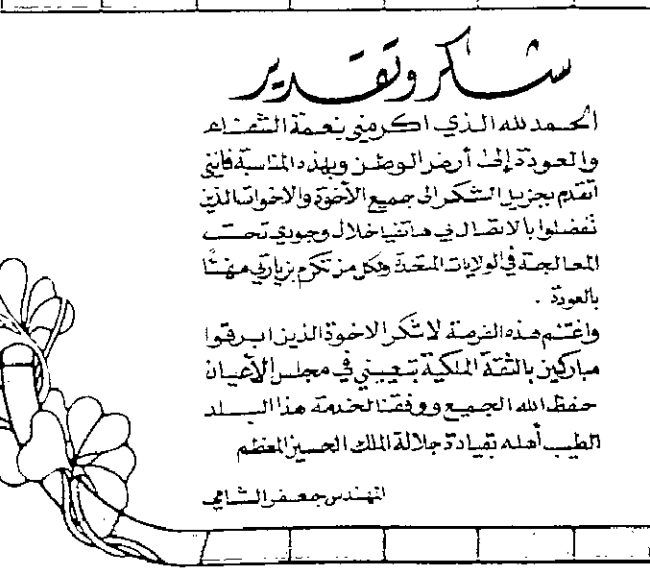 شكر وتقدير
الحمد لله الذي اكرمني بنعمة الشفاء
والعودة إلى أرض الوطن وبهذه المناسبة فإنني
أتقدم بجزيل الشكر الى جميع الأخوة والاخوات الذين
تفضلوا بالاتصال بي هاتفيا خلال وجودي تحت
المعالجة في الولايات المتحدة ولكل من تكرم بزيارتي مهنئًا
بالعودة .
واغتنم هذه الفرصة لاشكر الاخوة الذين ابرقوا
مباركين بالثقة الملكية بتعييني في مجلس الأعيان
حفظ الله الجميع ووفقنا لخدمة هذا البلد
الطيب أهله بقيادة جلالة الملك الحسين المعظم
المهندس جعفر الشامي